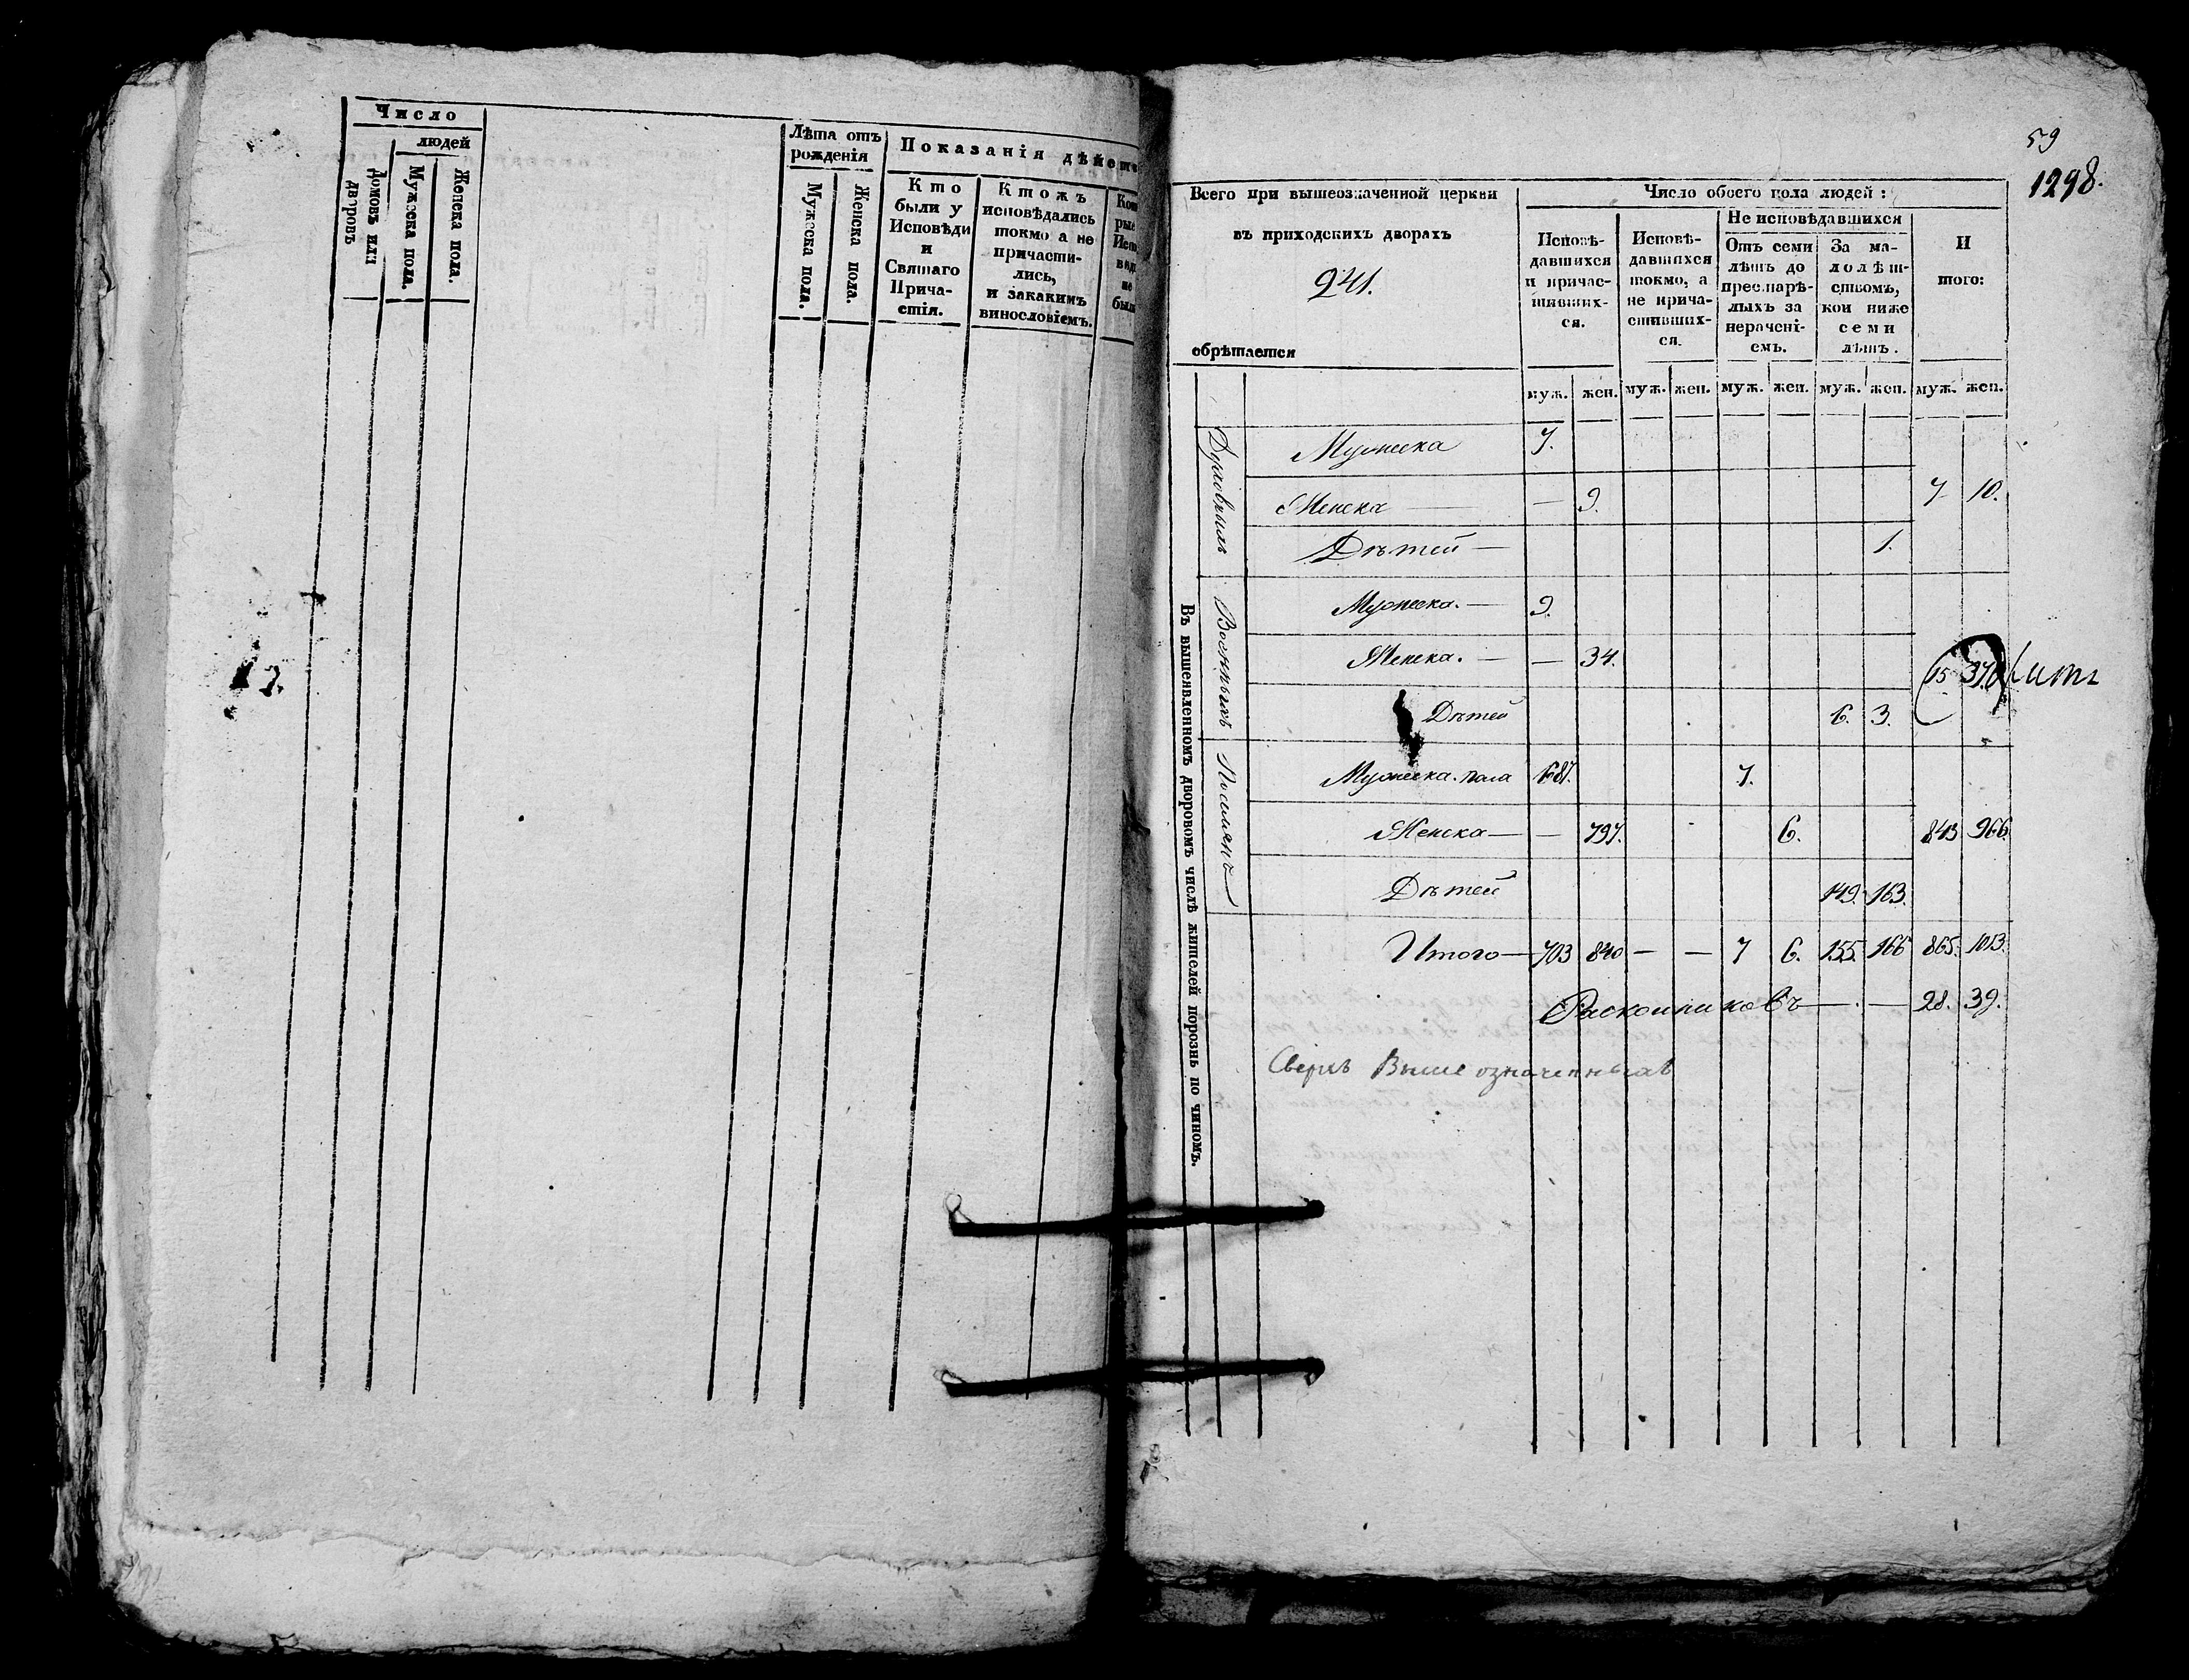 Число
людей
Домовъ или дворовъ
Мужеска пола.
Женска пола.
Лѣта отъ рожденія
Мужеска пола.
Женска пола.
Показанія дѣйств
Кто
были у
Исповѣди
и
Святаго
Прича-
стія.
Ктожъ
исповѣдались
токмо а не
причасти-
лись,
и закакимъ
винословіемъ.
Кото
рые
Испо
вѣд
не
были
59
1298.
Всего при вышеозначенной церкви
въ приходскихъ дворахъ
241.
обрѣтается
Число обоего пола людей:
Исповѣ-
давшихся
и причас-
тивших-
ся.
Исповѣ-
давшихся
токмо, а
не прича-
стивших-
ся.
Не исповѣдавшихся
Отъ семи
лѣтъ до
престарѣ-
лыхъ за
нерачені-
емъ.
За ма-
лолѣт-
ствомъ,
кои ниже
семи
лѣтъ.
И
того:
муж. жен. муж. жен. муж. жен. муж. жен. муж. жен.
Въ вышеявленномъ дворовомъ числѣ жителей порознь по чиномъ.
Духовныхъ
Мужеска 7.
Женска — — 9. 7 10.
Дѣтей — 1.
Военныхъ
Мужеска. — 9.
Женска. — — 34. 15 37
Дѣтей 6. 3.
Посмлянъ
Мужеска. пола 687. 7.
Женска — — 797. 6. 843 966.
Дѣтей 149. 163.
Итого — 703 840 — — 7 6. 155. 166 865. 1013.
Раскольниковъ — — 28. 39.
Сверхъ Выше означенныхъ